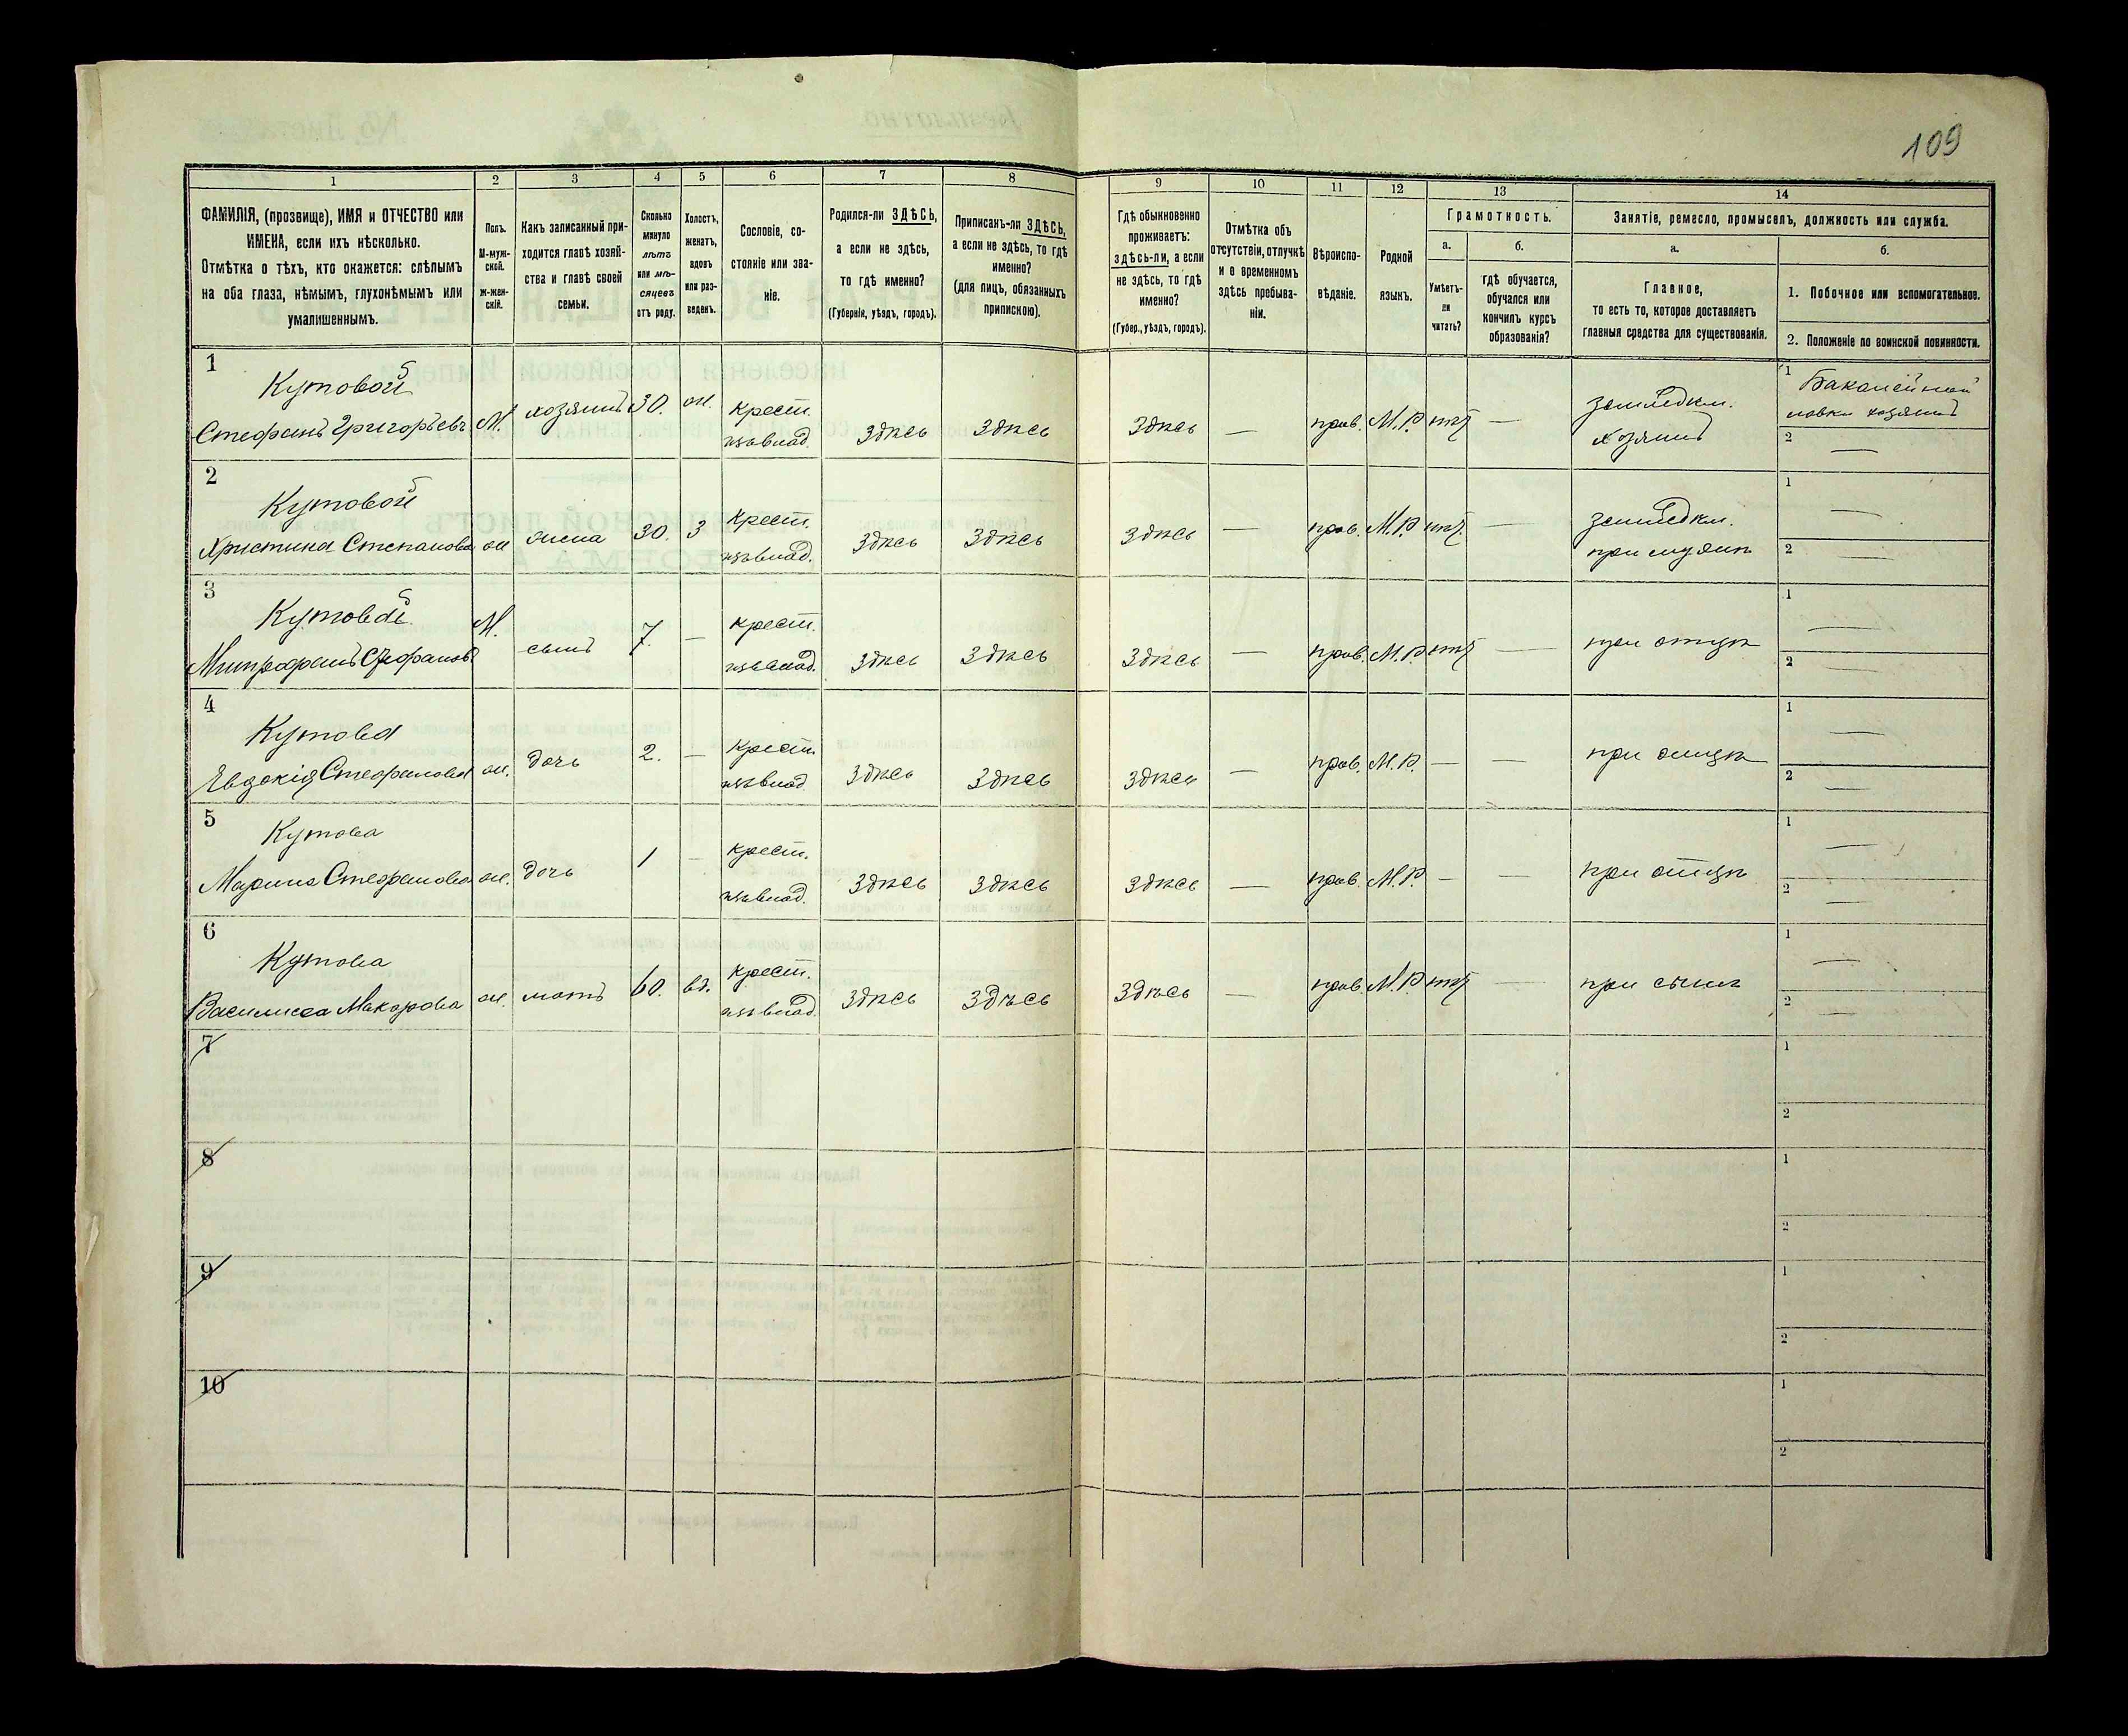 109
1 2 3 4 5 6 7 8 9 10 11 12 13 14
ФАМИЛІЯ, (прозвище), ИМЯ и ОТЧЕСТВО или
ИМЕНА, если ихъ нѣсколько.
Отмѣтка о тѣхъ, кто окажется: слѣпымъ
на оба глаза, нѣмымъ, глухонѣмымъ или
умалишеннымъ.
Полъ.
М-муж-
ской.
ж-жен-
скій.
Какъ записанный при-
ходится главѣ хозяй-
ства и главѣ своей
семьи.
Сколько
минуло
лѣтъ
или мѣ-
сяцевъ
отъ роду.
Холостъ,
женатъ,
вдовъ
или раз-
веденъ.
Сословіе, со-
стояніе или зва-
ніе.
Родился-ли ЗДѢСЬ,
а если не здѣсь,
то гдѣ именно?
(Губернія, уѣздъ, городъ).
Приписанъ-ли ЗДѢСЬ,
а если не здѣсь, то гдѣ
именно?
(для лицъ, обязанныхъ
припискою).
Гдѣ обыкновенно
проживаетъ:
здѣсь-ли, а если
не здѣсь, то гдѣ
именно?
(Губер., уѣздъ, городъ).
Отмѣтка объ
отсутствіи, отлучкѣ
и о временномъ
здѣсь пребыва-
ніи.
Вѣроиспо-
вѣданіе.
Родной
языкъ.
Грамотность.
а.
Умѣетъ-
ли
читать?
б.
гдѣ обучается,
обучался или
кончилъ курсъ
образованія?
Занятіе, ремесло, промыселъ, должность или служба.
а.
Главное,
то есть то, которое доставляетъ
главныя средства для существованія.
б.
1. Побочное или вспомогательное.
2. Положеніе по воинской повинности.
1
Кутовой
Стефанъ Григорьевъ М. хозяинъ 30. ж. крест. Здѣсь Здѣсь Здѣсь — прав. М.Р. — земледѣл. хозяинъ
1 Бакалейной
лавки хозяинъ
2 —
2
Кутовой
Христина Степанова ж жена 30. З крест. Здѣсь Здѣсь Здѣсь — прав. М.Р. — земледѣл. при мужѣ
1 —
2 —
3
Кутовой
Митрофанъ Стефановъ М. сынъ 7. — крест. Здѣсь Здѣсь Здѣсь — прав. М.Р. — при отцѣ
1 —
2 —
4
Кутова
Евдокія Стефанова ж. дочь 2. — крест. Здѣсь Здѣсь Здѣсь — прав. М.Р. — — при отцѣ
1 —
2 —
5
Кутова
Марина Стефанова ж. дочь 1 — крест. Здѣсь Здѣсь Здѣсь — прав. М.Р. — — при отцѣ
1 —
2 —
6
Кутова
Василиса Макарова ж. мать 60. вд. крест. Здѣсь Здѣсь Здѣсь — прав. М.Р. — при сынѣ
1 —
2 —
7
1
2
8
1
2
9
1
2
10
1
2